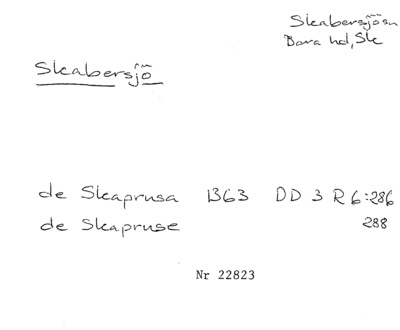 Skabersjö sn
Bara hd, Sk
Skabersjö
de Skaprusa 1363 DD 3 R 6:286
de Skapruse 288
Nr 22823